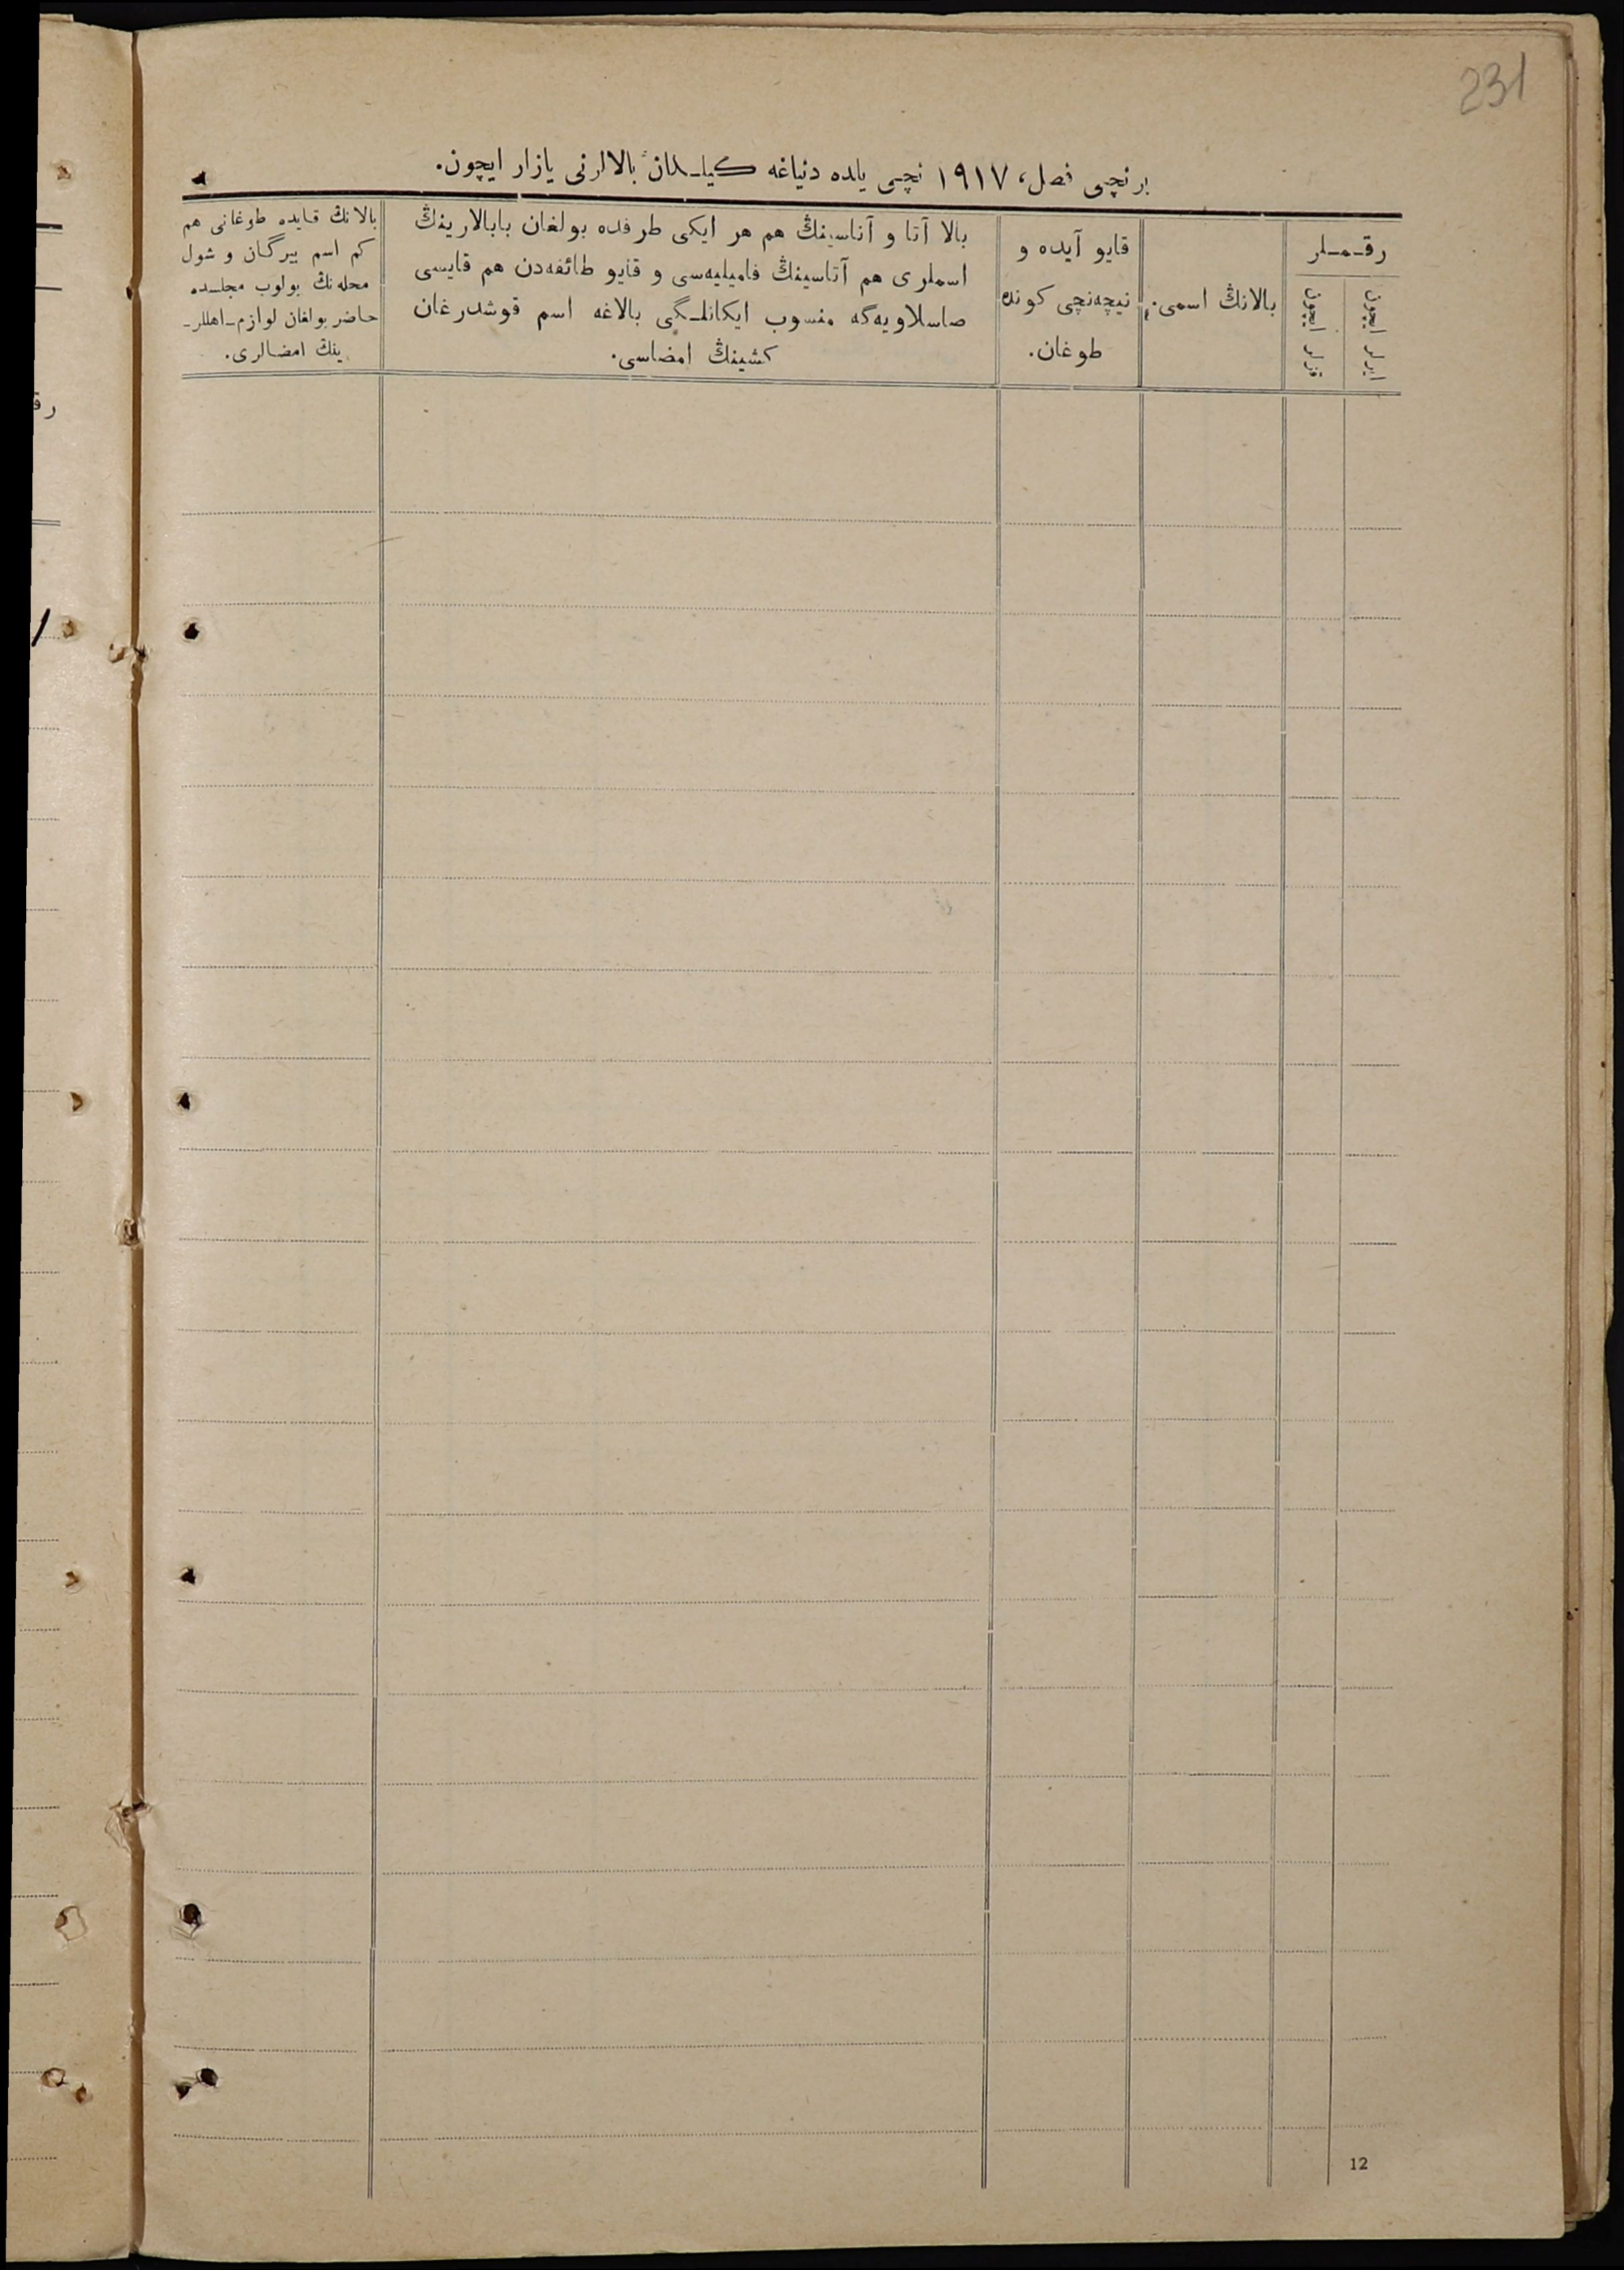 231
برنچی فصل، ١٩١٧ نچی یلده دنیاغه کیلـگان بالالرنی یازار ایچون.
رقـمـلر
ایرلر ایچون
قزلر ایچون
بالانڭ اسمی.
قایو آیده و
نیچه‌نچی کونده
طوغان.
بالا آتا و آناسینڭ هم هر ایکی طرفده بولغان بابالارینڭ
اسملری هم آتاسینڭ فامیلیه‌سی و قایو طائفه‌دن هم قایسی
صاسلاویه‌گه منسوب ایکانلـگی بالاغه اسم قوشدرغان
کشینڭ امضاسی.
بالانڭ قایده طوغانی هم
کم اسم بیرگان و شول
محله‌نڭ بولوب مجلـسده
حاضر بولغان لوازم‌ـاهللر‌ـ
ینڭ امضالری.
رق
12